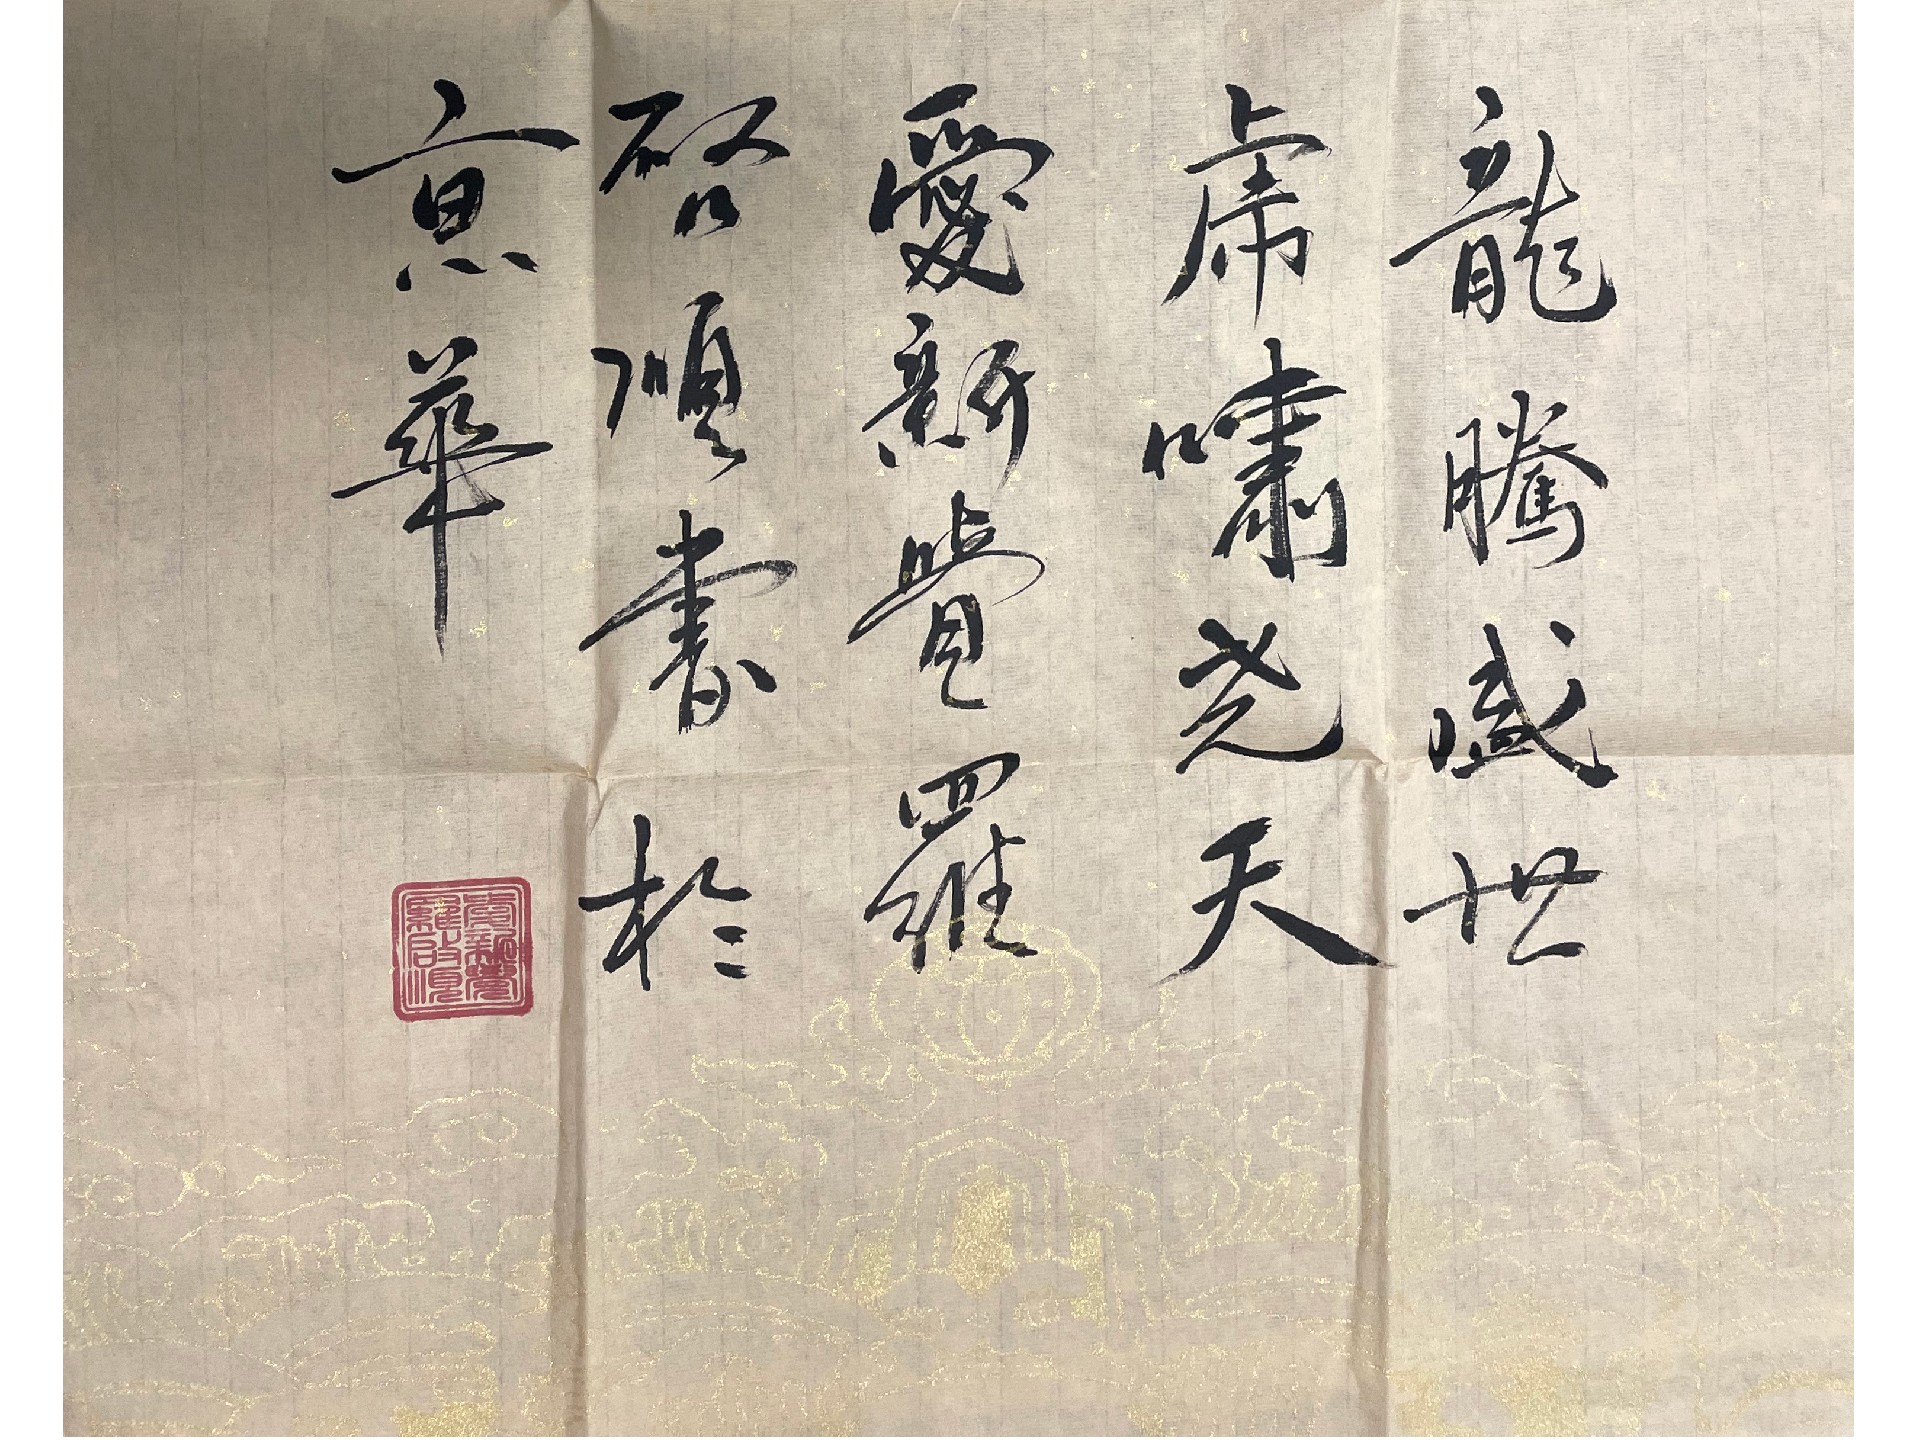 龍騰盛世
虎嘯尧天
愛新覺羅
啓順書於
京華
愛新覺
羅啟順